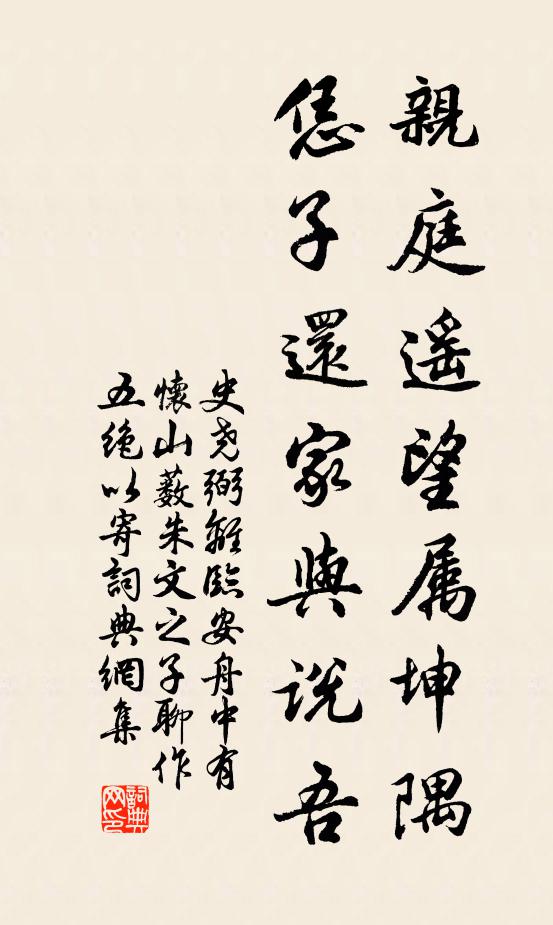 親庭遥望属坤隅
恁子還家與説吾
史尧弼離臨安舟中有
懷山薮朱文之子聊作
五絶以寄詞典網集
詞典网印